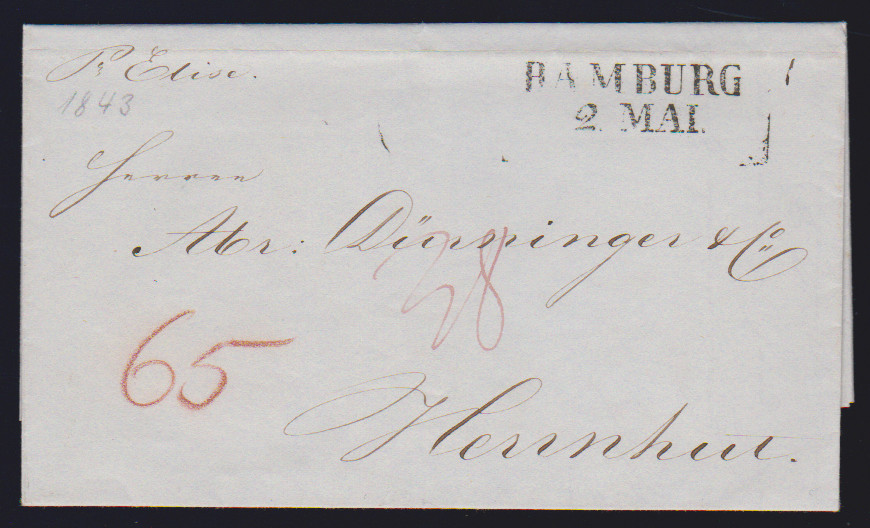 Pr Elise.
HAMBURG
2. MAI.
1843
Herren
Abr: Dürninger & Co
28
65
Herrnhut.